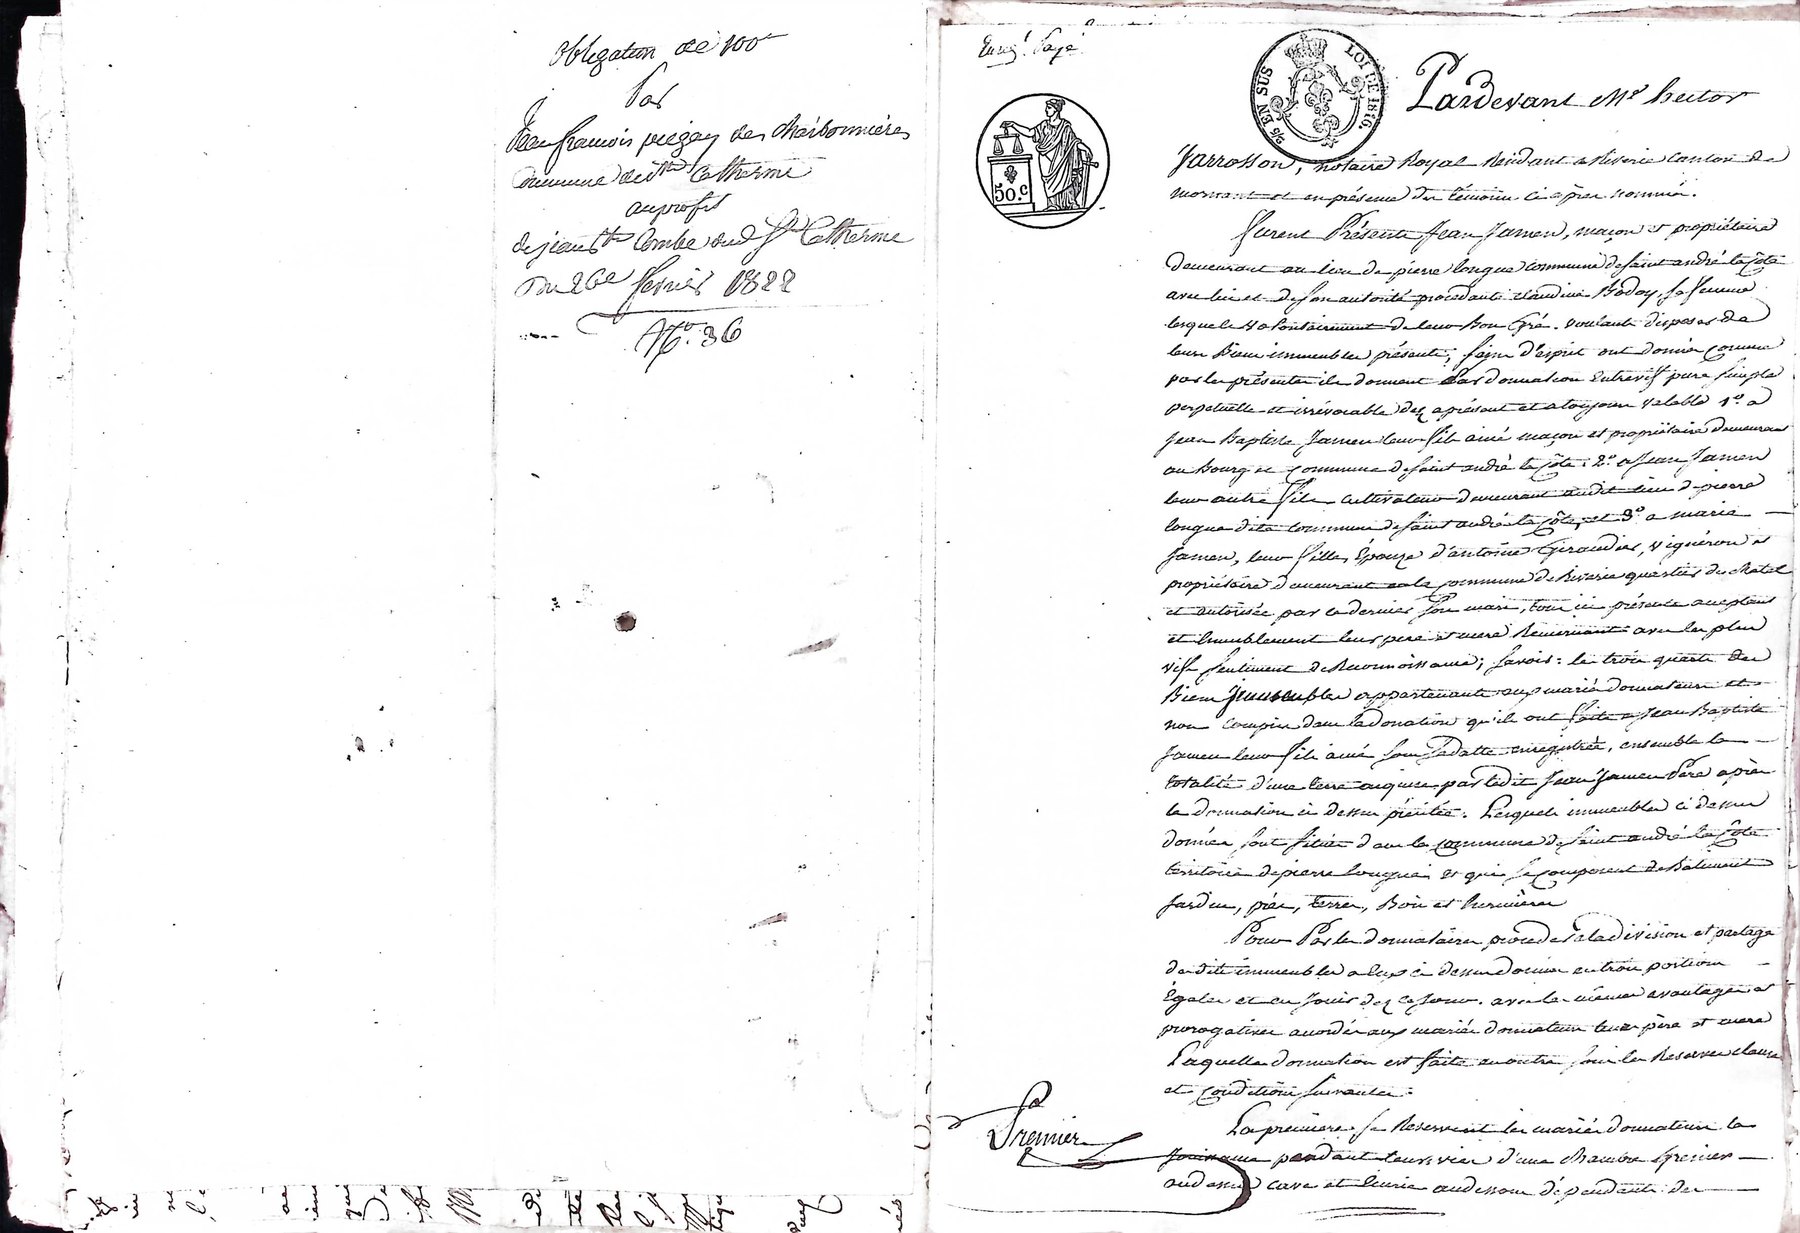 obligation de 100
Par
Jean francois piegay des charbonnières
commune de ste Catherine
au profit
de jean Bte Combe dud Ste Catherine
Du 26e fevrier 1822
No. 36
Enregt. Payé
50.c
2/5 EN SUS
LOI DE 1816.
Pardevant Me hector
Jarrosson, notaire Royal Résidant a Riverie canton de
mornant et en présence des témoins ci après nommés.
furent Présents Jean Jamen, maçon et propriétaire
demeurant au lieu de pierre longue commune de saint andré la Côte
avec lui et de son autorité procedante claudine Boday, sa femme
lesquels volontairement de leur Bon Gré. voulants disposer de
leurs Biens immeubles présents, sains d'esprit ont donnés comme
par les présentes ils donnent Par donnation Entrevifs pure simple
perpetuelle et irrévocable dez aprésent et atoujours valable 1o. a
Jean Baptiste Jamen leur fils ainé maçon et propriétaire demeurant
au Bourg et commune de saint andré la Côte. 2o. a Jean Jamen
leur autre fils cultivateur demeurant audit lieu de pierre
longue dite commune de saint andré la Côte, et 3o a marie
Jamen, leur fille, Épouze d'antoine Giraudier, vigneron et
propriétaire demeurant en la commune de Riverie quartier du chatel
et autorisée par ce dernier son mari, tous ici présents acceptants
et humblement leurs pere et mere Remerciants avec les plus
vifs sentiments de Reconnoissance; savoir: les trois quarts des
Biens Jmmeubles appartenants aux mariés donnateurs et
non compris dans la donation qu'ils ont faite a Jean Baptiste
Jamen leur fils ainé sous sa datte enregistrée, ensemble la
totalité d'une terre acquise par ledit Jean Jamen Père après
la donnation ci dessus précitée. Lesquels immeubles ci dessus
donnés sont situés dans la commune de saint andré la Côte
territoire de pierre longue et qui se composent de Batiments
Jardin, prés, terres, Bois et hermières
Pour Par les donnataires procéder a la division et partage
desdits immeubles a eux ci dessus donnés en trois portions
Égales et en Jouir dez ce Jour. avec les mêmes avantages et
prorogatives accordés aux mariés donnateurs leurs père et mere
Laquelle donnation est faite en outre sous les Reserves clauses
et conditions suivantes:
La première. se Reservent les mariés donnateurs la
Jouissance pendant leurs vies d'une chambre Grenier
au dessus cave et Écurie au dessous dépendants des
Premier